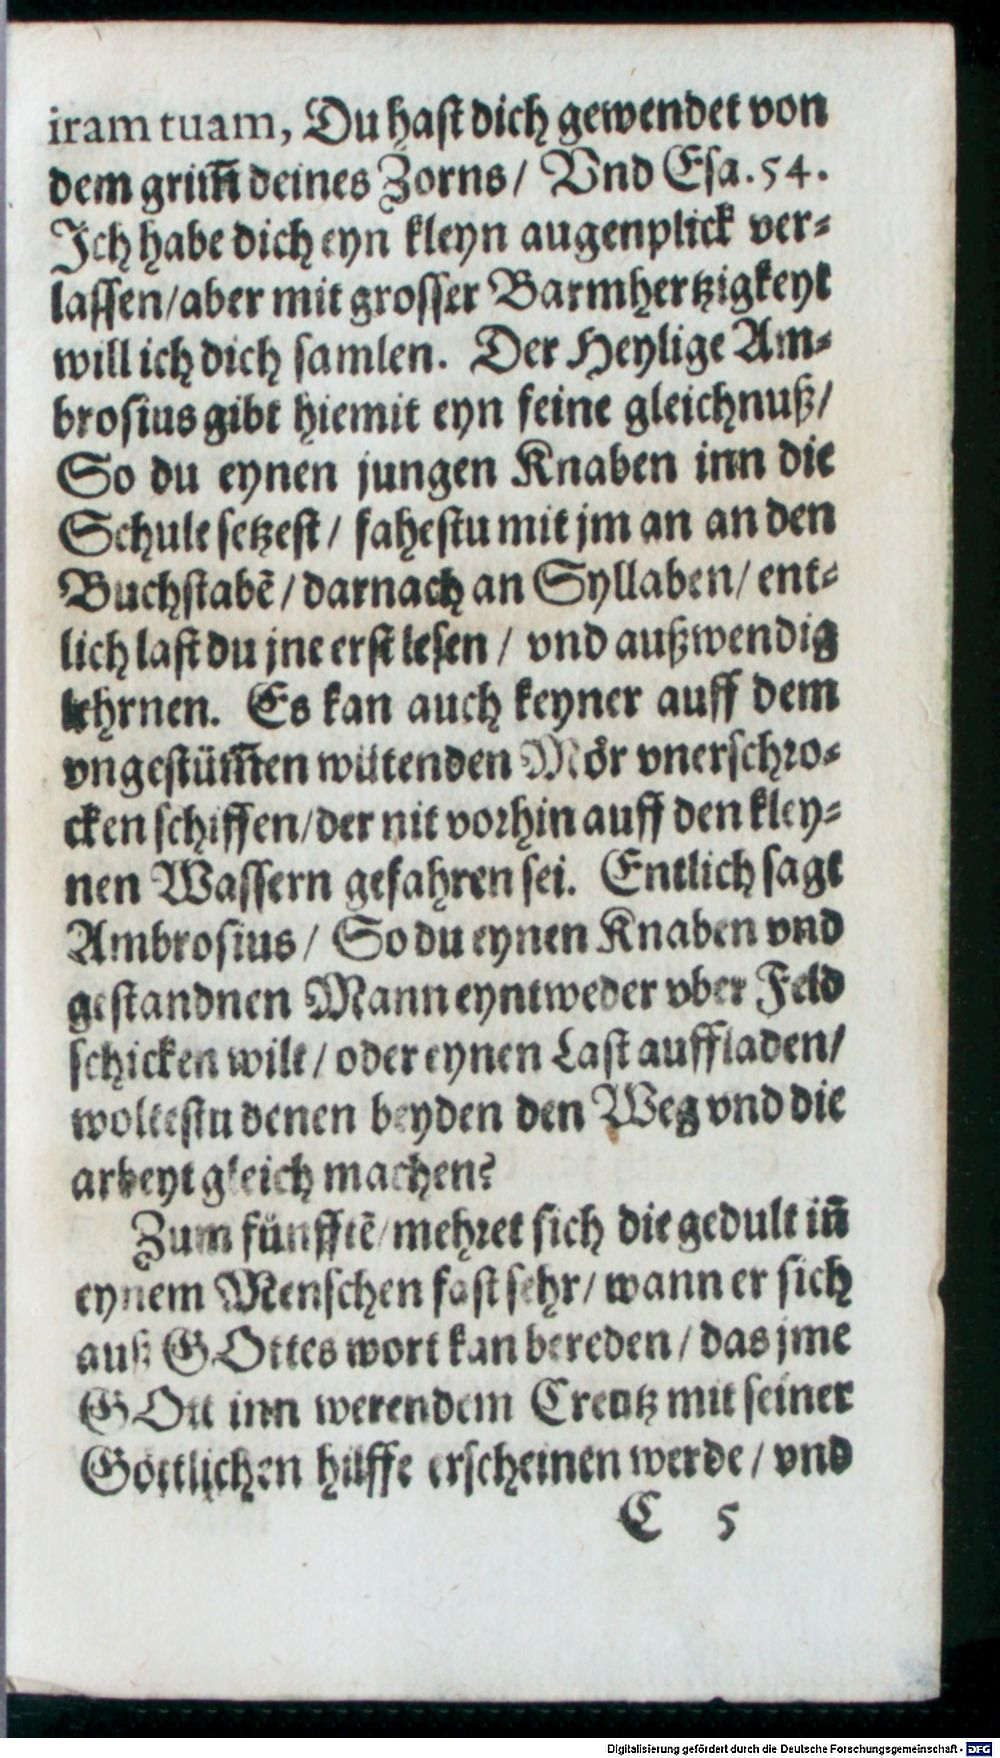 iram tuam, Du haſt dich gewendet von
dem grim̃ deines Zorns/ Vnd Eſa. 54.
Ich habe dich eyn kleyn augenplick ver⸗
laſſen/aber mit groſſer Barmhertzigkeyt
will ich dich ſamlen. Der Heylige Am⸗
broſius gibt hiemit eyn feine gleichnuß/
So du eynen jungen Knaben inn die
Schule ſetzeſt/ faheſtu mit jm an an den
Buchſtabẽ/ darnach an Syllaben/ ent⸗
lich laſt du jne erſt leſen/ vnd außwendig
lehrnen. Es kan auch keyner auff dem
vngeſtüm̃en wütenden Mör vnerſchro⸗
cken ſchiffen/der nit vorhin auff den kley⸗
nen Waſſern gefahren ſei. Entlich ſagt
Ambroſius/ So du eynen Knaben vnd
geſtandnen Mann eyntweder vber Feld
ſchicken wilt/ oder eynen Laſt auffladen/
wolteſtu denen beyden den Weg vnd die
arbeyt gleich machen?
Zum fünfftẽ/ mehret ſich die gedult iñ
eynem Menſchen faſt ſehr/ wann er ſich
auß GOttes wort kan bereden/ das jme
GOtt inn werendem Creutz mit ſeiner
Göttlichen hilffe erſcheinen werde/ vnd
C 5
Digitalisierung gefördert durch die Deutsche Forschungsgemeinschaft - DFG